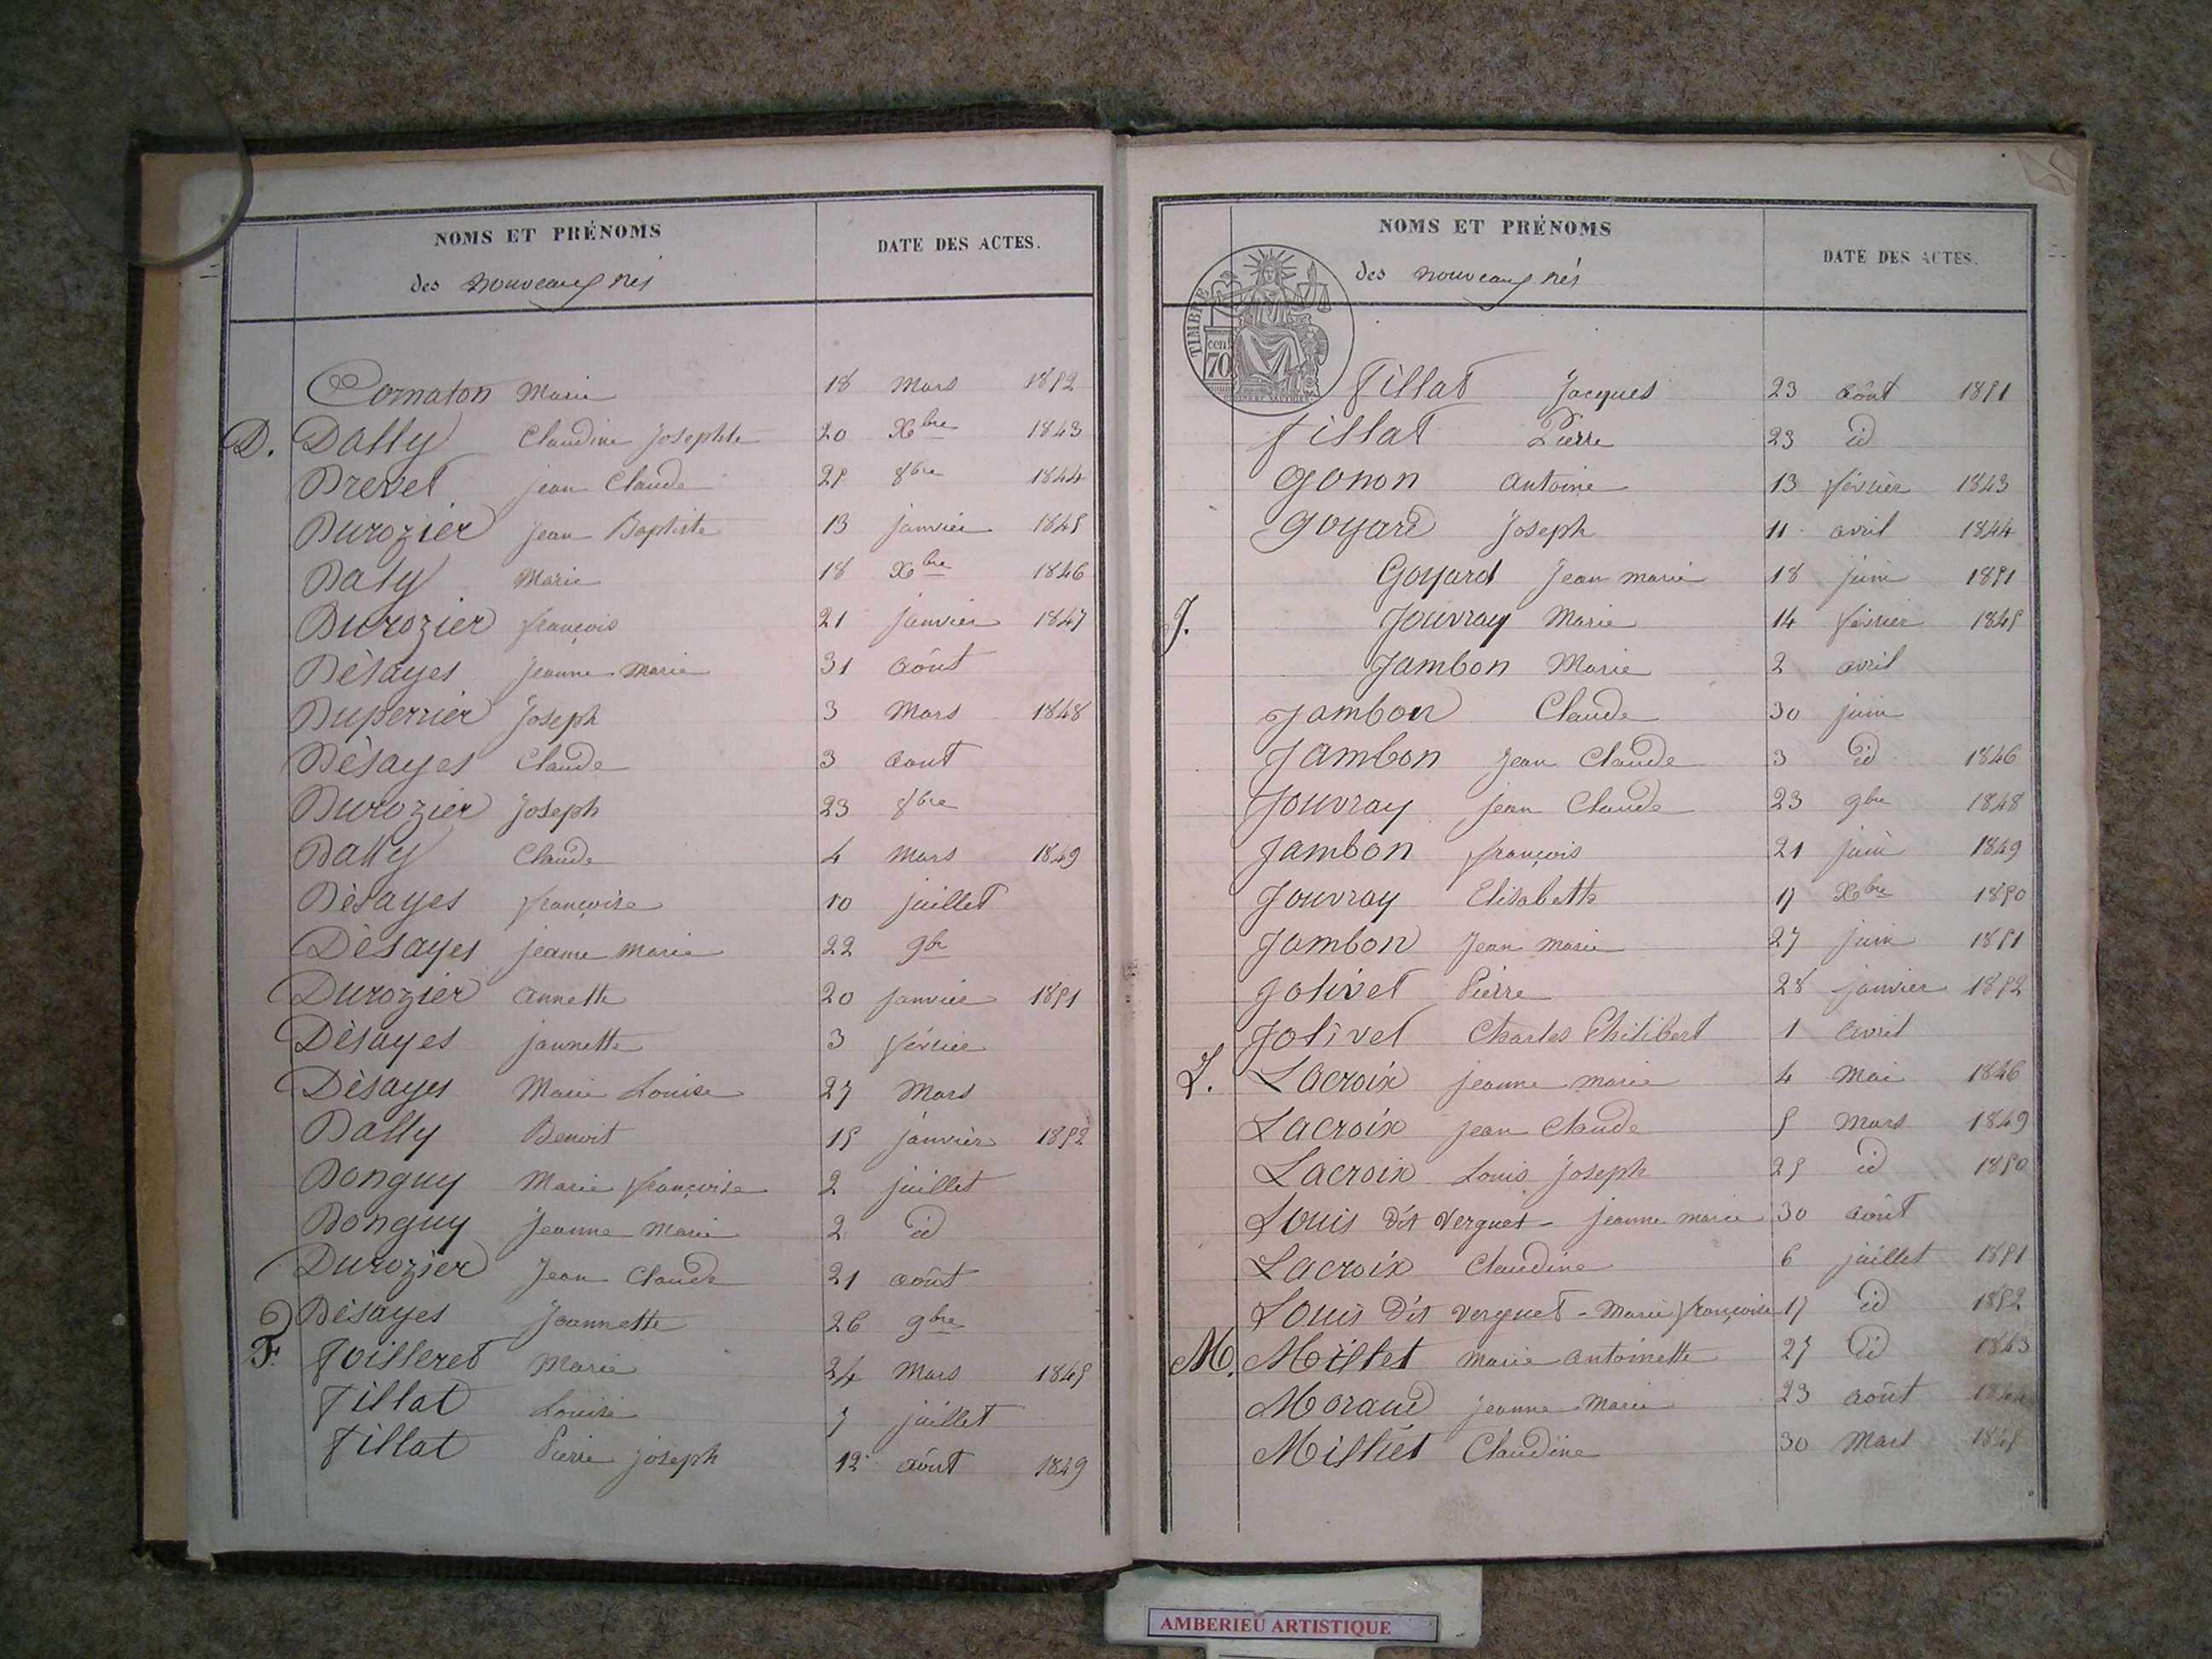 NOMS ET PRÉNOMS
des nouveaux nés
DATE DES ACTES.
Cornaton Marie 18 Mars 1852
D. Dally Claudine Josephte 20 Xbre 1843
Drevet jean Claude 25 8bre 1844
Durozier Jean Baptiste 13 janvier 1845
Daly Marie 18 Xbre 1846
Durozier françois 21 janvier 1847
Désayes Jeanne Marie 31 août
Duperrier Joseph 3 Mars 1848
Désayes Claude 3 aout
Durozier Joseph 23 8bre
Dally Claude 4 Mars 1849
Désayes françoise 10 juillet
Désayes jeanne Marie 22 9bre
Durozier annette 20 janvier 1851
Désayes jannette 3 février
Désayes Marie Louise 27 Mars
Dally Benoit 15 janvier 1852
Donguy Marie françoise 2 juillet
Donguy Jeanne Marie 2 id
Durozier Jean Claude 21 août
Désayes Jeannette 26 9bre
F. Foilleret Marie 24 Mars 1845
Fillat Louise 7 juillet
Fillat Pierre joseph 12 août 1849
NOMS ET PRÉNOMS
des nouveaux nés
DATE DES ACTES.
TIMBRE
cen.
70
Fillat Jacques 23 août 1851
Fillat Pierre 23 id
Gonon antoine 13 février 1843
Goyard Joseph 11 avril 1844
Goyard Jean marie 18 juin 1851
J. Jouvray Marie 14 février 1845
Jambon Marie 2 avril
Jambon Claude 30 juin
Jambon Jean Claude 3 id 1846
Jouvray jean Claude 23 9bre 1848
Jambon françois 21 juin 1849
Jouvray Elisabeth 17 Xbre 1850
Jambon Jean marie 27 juin 1851
Jolivet Pierre 28 janvier 1852
Jolivet Charles Philibert 1 avril
L. Lacroix jeanne marie 4 Mai 1846
Lacroix jean Claude 5 Mars 1849
Lacroix Louis Joseph 25 id 1850
Louis dit Verguet - jeanne marie 30 août
Lacroix Claudine 6 juillet 1851
Louis dit verguet - Marie françoise 17 id 1852
M. Millet marie antoinette 27 id 1843
Moraud jeanne Marie 23 août 1844
Milliet Claudine 30 Mars 1845
AMBERIEU ARTISTIQUE